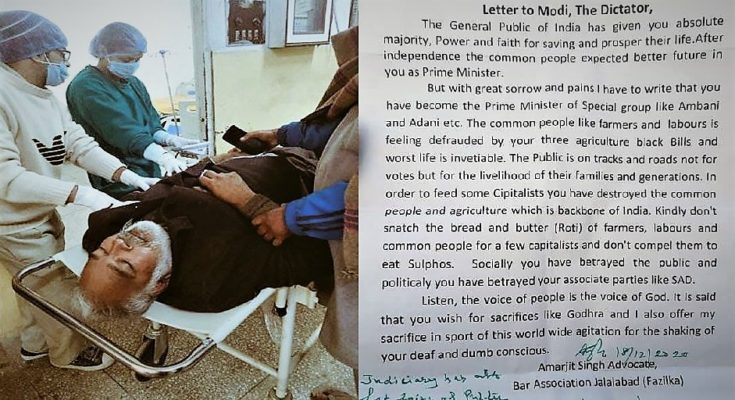 Letter to Modi, The Dictator,
The General Public of India has given you absolute
majority, Power and faith for saving and prosper their life.After
independence the common people expected better future in
you as Prime Minister.
But with great sorrow and pains I have to write that you
have become the Prime Minister of Special group like Ambani
and Adani etc. The common people like farmers and labours is
feeling defrauded by your three agriculture black Bills and
worst life is invetiable. The Public is on tracks and roads not for
votes but for the livelihood of their families and generations. In
order to feed some Cipitalists you have destroyed the common
people and agriculture which is backbone of India. Kindly don't
snatch the bread and butter (Roti) of farmers, labours and
common people for a few capitalists and don't compel them to
eat Sulphos. Socially you have betrayed the public and
politicaly you have betrayed your associate parties like SAD.
Listen, the voice of people is the voice of God. It is said
that you wish for sacrifices like Godhra and I also offer my
sacrifice in sport of this world wide agitation for the shaking of
your deaf and dumb conscious. 18/12/2020
Amarjit Singh Advocate,
Judiciary has
Bar Association Jalalabad (Fazilka)